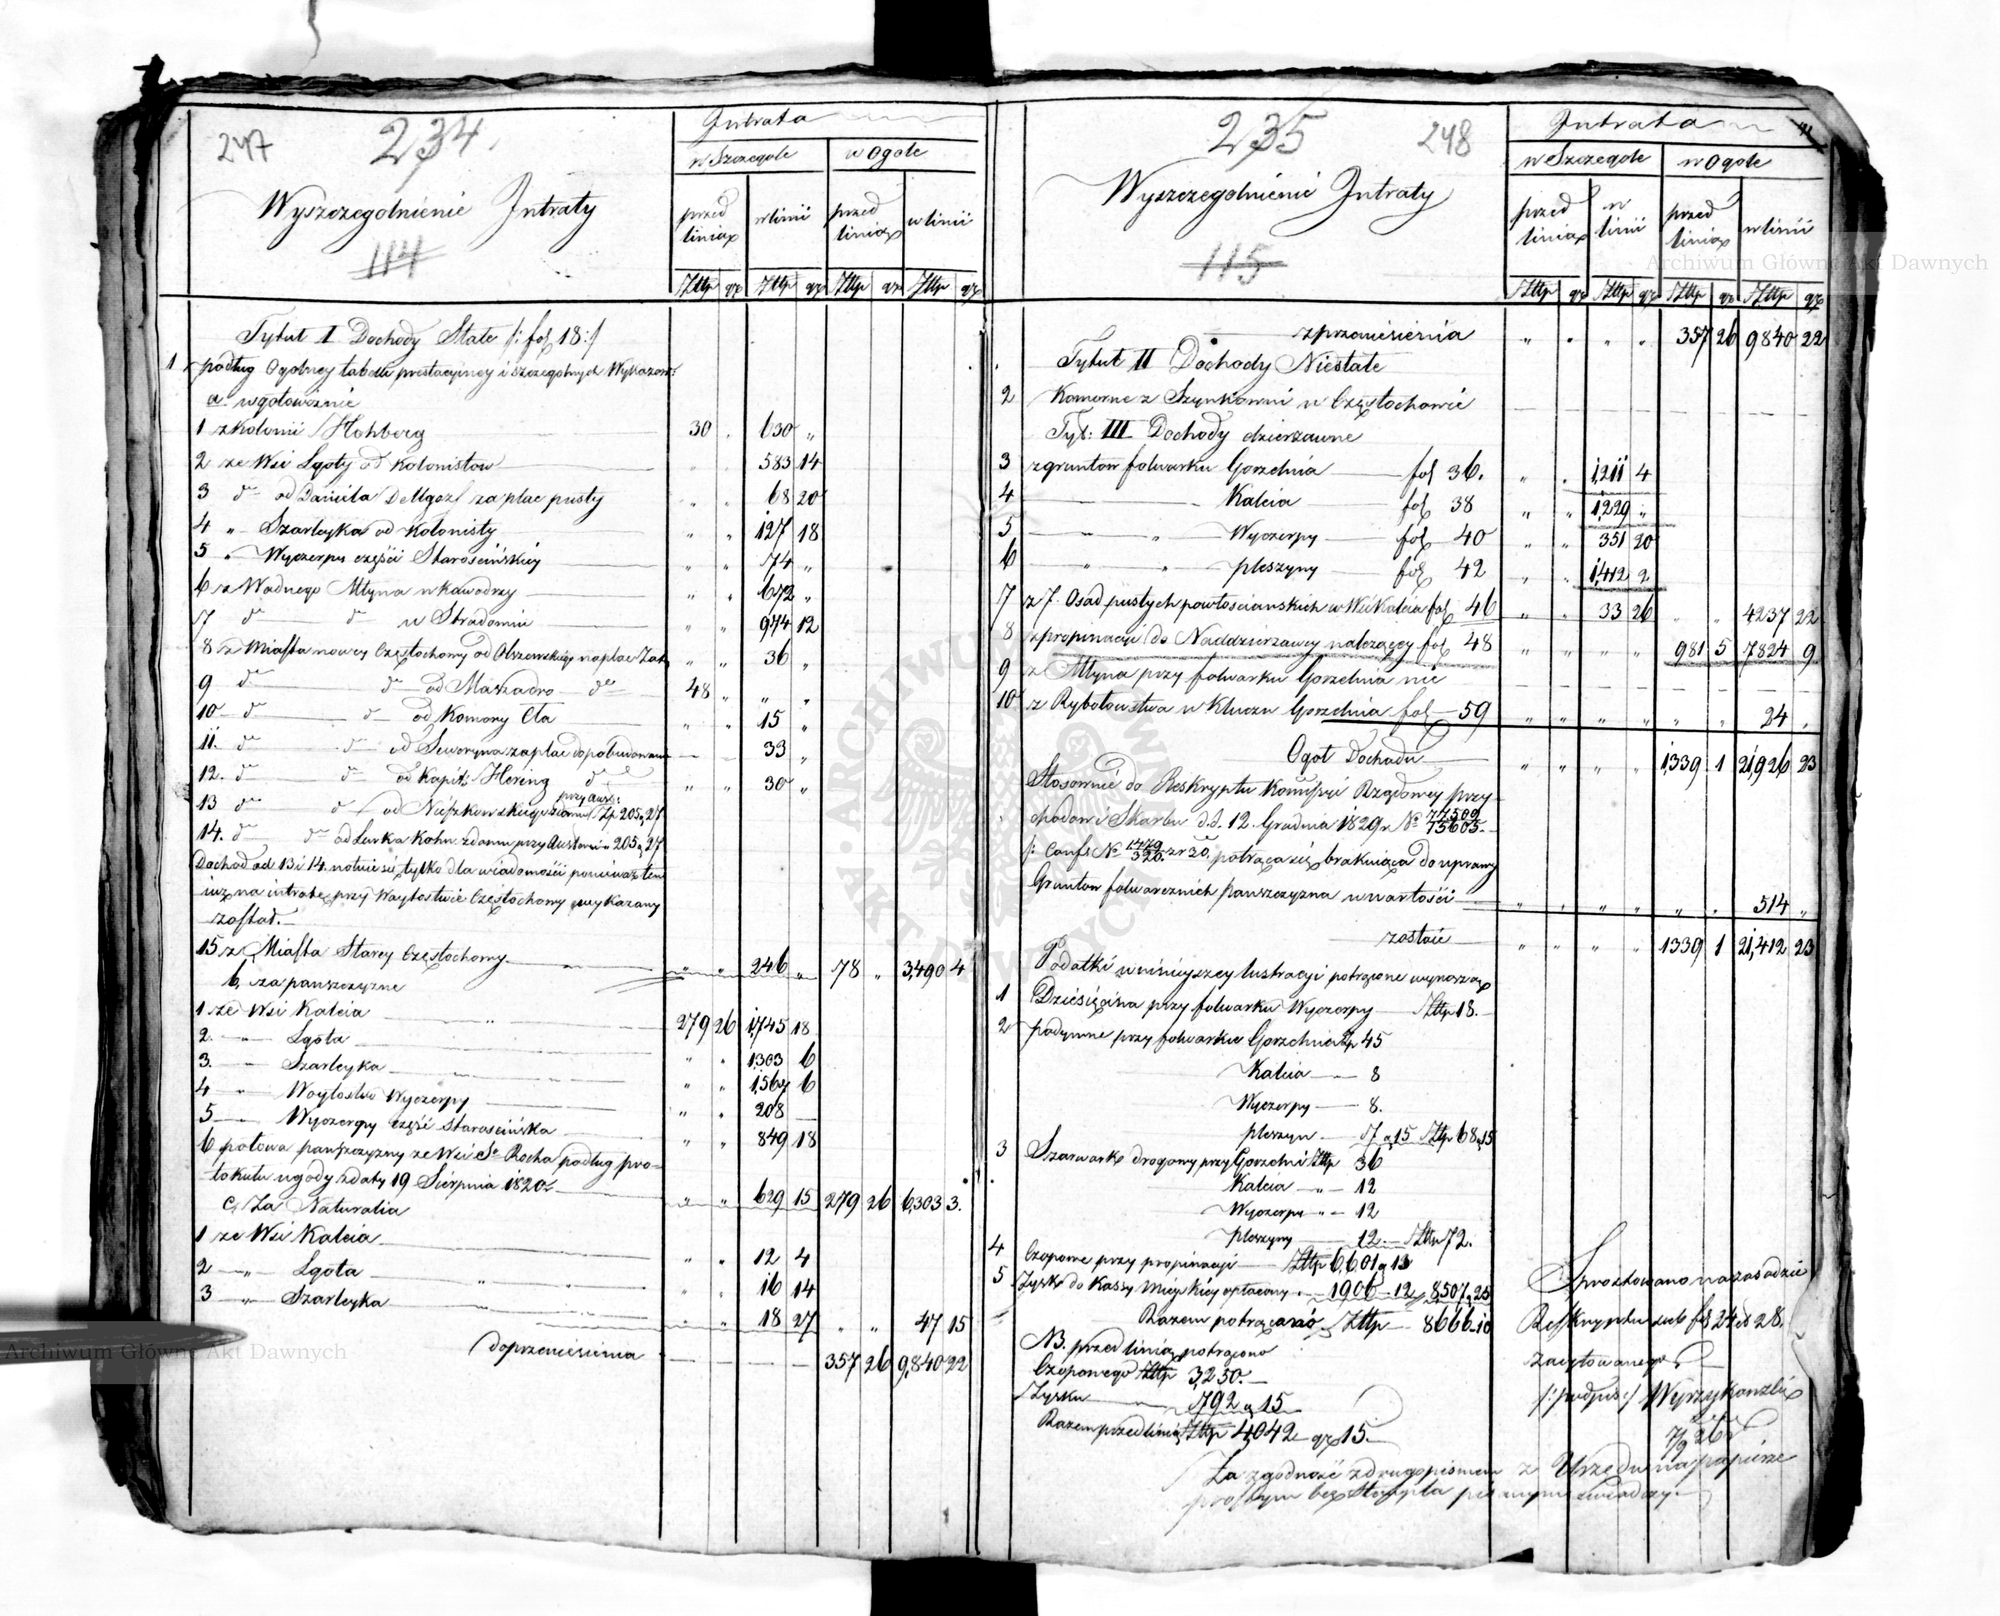 247 234.
Intrata
w Szczegole w Ogole
Wyszczegolnienie Intraty
przed liniax w linii przed liniax w linii
114
Złłp gr Złłp gr Złłp gr Złłp gr
Tytuł I Dochody Stałe /: fol 18 :/
1 podług Ogolney tabelli prestacyiney i szczegolnych Wykazow:
a. w gotowiznie
1 z Kolonii Hohberg 30 . 630 „
2 ze Wsi Lgoty od Kolonistow „ „ 583 14
3 do od Daniela za plac pusty „ „ 68 20
4 „ Szarleyka od Kolonisty „ „ 127 18
5 „ Wyczerpu części Starościńskiey „ „ 74 „
6 z Wodnego Młyna w Kawodrzy „ „ 672 „
7 do do w Stradomiu „ „ 974 12
8 z Miasta nowey Częstochowy od Olszewskiego na plac „ „ 36 „
9 do do od do 48 „ „ „
10 do do od Komory Cła „ „ 15 „
11. do do od Seweryna za plac do pobudowania — — 33 „
12. do do od Kapit: Hering do „ „ 30 „
13 do do od przy Aust: Zp 205 g 27
14. do do od Lurka Kohn z domu przy Austeri „ 205 g 27
Dochod od 13 i 14. notuie się tylko dla wiadomości ponieważ ten
iuż na intratę przy Woytostwie Częstochowy wykazany
został.
15 z Miasta Starey Częstochowy „ „ 246 „ 78 „ 3,490 4
b, za panszczyzne
1 ze Wsi Kalcia 279 26 1,745 18
2. — „ Lgota „ „ 1303 6
3. — Szarleyka „ „ 1,567 6
4 „ Woytostw Wyczerpy „ „ 208 —
5 — Wyczerpy część Starościńska „ „ 849 18
6 połowa panszczyzny ze Wsi St Rocha podług pro-
tokułu ugody z daty 19 Sierpnia 1820 r „ „ 629 15 279 26 6,303 3.
c, Za Naturalia
1 ze Wsi Kalcia „ „ 12 4
2 — „ Lgota „ „ 16 14
3 „ Szarleyka „ „ 18 27 „ „ 47 15
do przeniesienia — — — — 357 26 9,840 22
235 248
Intrata
w Szczegole w Ogole
Wyszczegolnienie Intraty
przed liniax w linii przed liniax w linii
115
Złłp gr Złłp gr Złłp gr Złłp gr
z przeniesienia „ „ „ „ 357 26 9840 22
Tytuł II Dochody Niestałe
2 Komorne z Szynkowni w Częstochowie
Tyt: III Dochody dzierżawne
3 z gruntow folwarku Gorzelnia fol 36. „ „ 1,211 4
4 Kalcia fol 38 „ „ 1,229 „
5 „ Wyczerpy fol 40 „ „ 351 20
6 „ „ pleszyny fol 42 „ „ 1,412 2
7 z 7. Osad pustych powłościanskich w Wsi Kalcia fol 46 „ „ 33 26 „ „ 4237 22
8 z propinacyi do Naddzierżawcy należącey fol 48 „ „ „ „ 981 5 7824 9
9 z Młyna przy folwarku Gorzelnia nic
10 z Rybołowstwa w Kluczu Gorzelnia fol 59 „ „ „ „ „ „ 24 „
Ogoł Dochodu „ „ „ „ 1,339 1 21,926 23
Stosownie do Reskryptu Kommissyi Rządowey przy-
chodow i Skarbu d.d. 12. Grudnia 1829 r No 77509/75605.
/: Conf: No 1779/320 z r 30. potrąca się brakuiąca do uprawy
Gruntow folwarcznich panszczyzna w wartości „ „ „ „ „ „ 514 „
zostaie „ „ „ „ 1339 1 21,412 23
Podatki w niniejszey lustracyi potrącone wynoszą
1 Dziesięcina przy folwarku Wyczerpy Złłp 18.
2 podymne przy folwarku Gorzelnia Zp 45
Kalcia — 8
Wyczerpy — 8.
pleszyn — 7 g 15 Złłp 68 g 15
3 Szarwark drogowy przy Gorzelni Złłp 36
Kalcia „ — 12
Wyczerpu „ — 12
pleszyny 12. — Złłp 72.
4 Czopowe przy propinacyi Złłp 6,601 g 13
5 Zysk do Kassy Mieyskiey opłacony „ 1906 — 12 8,507 g 25
Razem potrącono Złłp — 8666 — 10
NB. przed linią potrącono
Czopowego Złłp 3,250. —
Zysku 792 g 15
Razem przed linią Złłp 4042 gr 15.
Sprostowano na zasadzie
Reskryptu sub fol 24 et 28.
zacytowanego
/: podpis :/ Wyrzykowski
7/9 26
Za zgodność z drugopismem z Urzędu na papierze
prostym bez Stempla